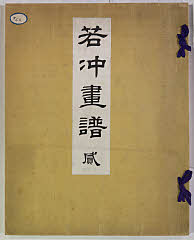 若冲畫譜 貳